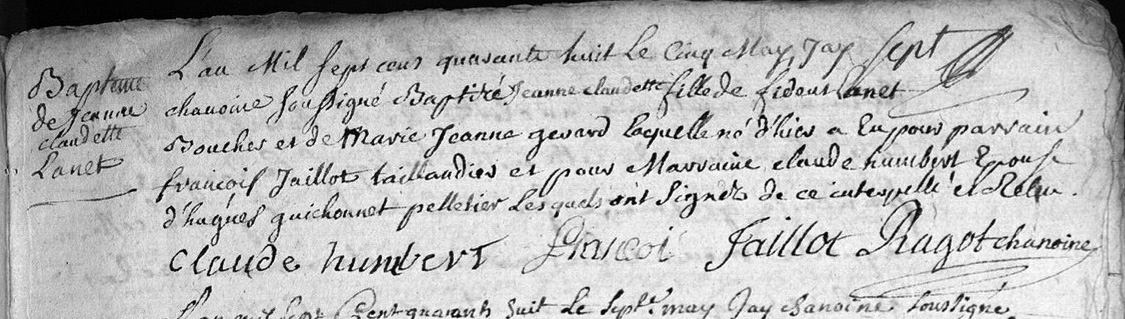 Bapteme
de Jeanne
claudette
Lanet
L'an Mil sept cens quarante huit Le Cinq May Jay Sept
chanoine soussigné Baptizé Jeanne claudette fille de fident Lanet
Boucher et de Marie Jeanne gerard laquelle né d'hier a Eu pour parrain
francois Jaillot taillandier et pour Marraine claude humbert Epouse
d'hugues guichonnet pelletier Lesquels ont Signés de ce interpellé et Relu.
claude humbert francoi Jaillot Ragot chanoine
L'an mil sept Cent quarante huit Le Sept. may Jay chanoine soussigné